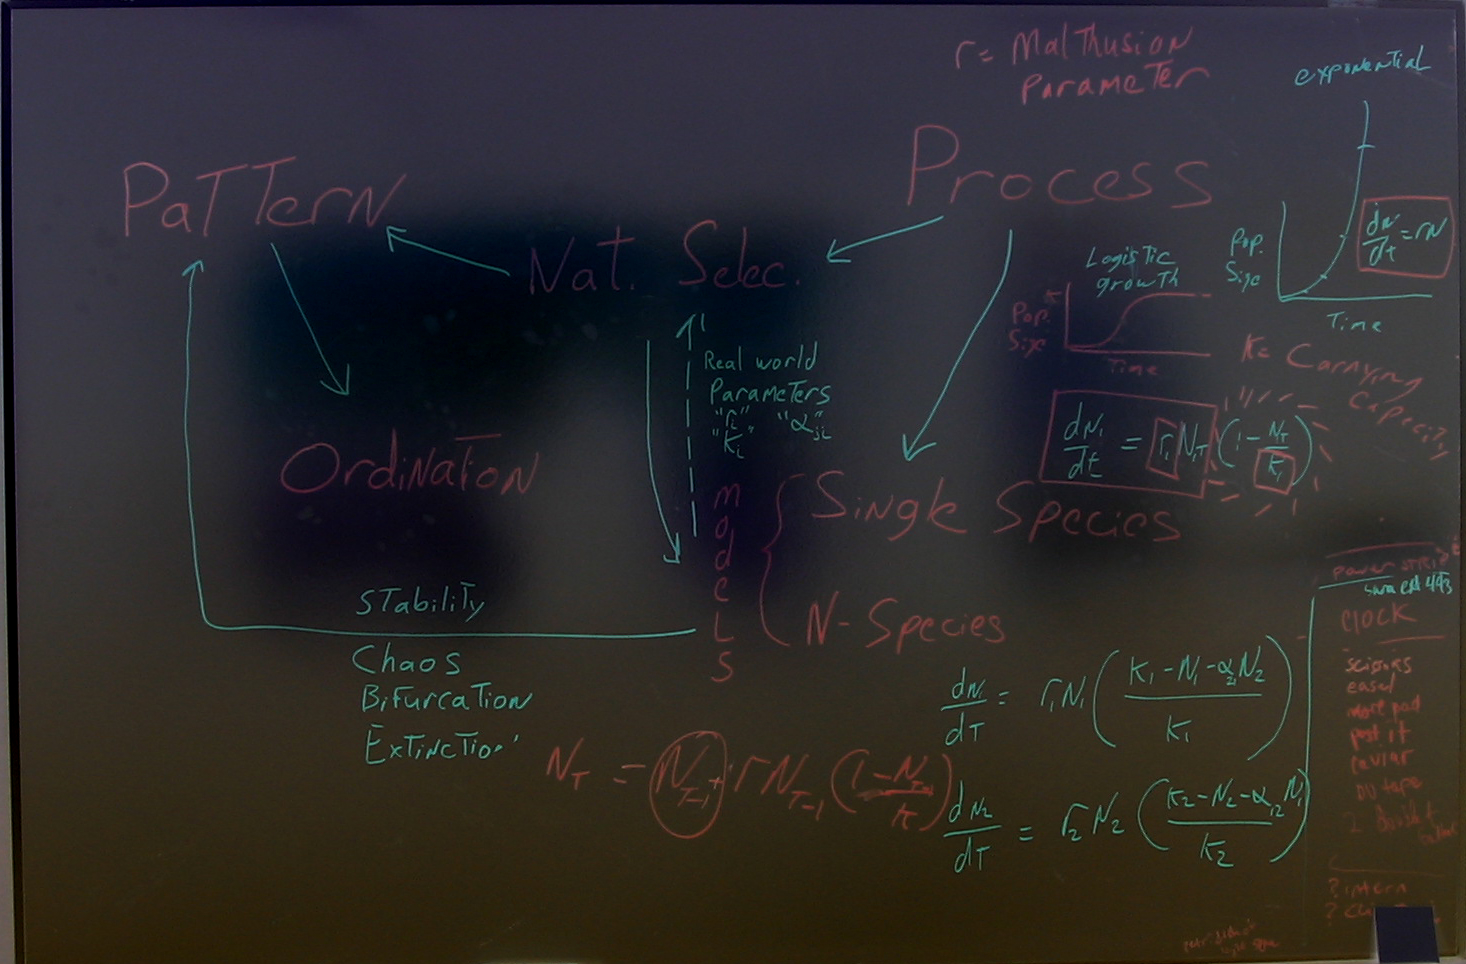 r = Malthusion
Parameter
exponential
Pattern
Process
Nat. Selec.
Logistic
growth
Pop.
Size
K
Time
Pop.
Size
Time
dN/dt = rN
K = Carrying
Capacity
Real world
Parameters
"ri" "αji"
"Ki"
dN1/dt = r1 N1T (1 - NT/K1)
Ordination
models
Single Species
N-Species
Stability
Chaos
Bifurcation
Extinction
dN1/dT = r1N1 (K1-N1-α21N2 / K1)
NT = NT-1 + rNT-1 (1-NT-1 / K)
dN2/dT = r2N2 (K2-N2-α12N1 / K2)
power strip
CLOCK
scissors
easel
more pad
post it
tape
2
? intern
?